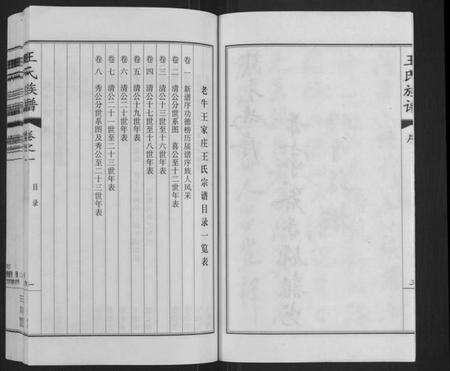 王氏族谱
序
老牛王家庄王氏宗谱目录一览表
卷一 新谱序功德榜历届谱序族人风采
卷二 清公分世系图 喜公至十二世年表
卷三 清公十三世至十六世年表
卷四 清公十七世至十八世年表
卷五 清公十九世年表
卷六 清公二十世年表
卷七 清公二十一世至二十三世年表
卷八 秀公分世系图及秀公至二十三世年表
王氏族谱
卷之一
目录
一